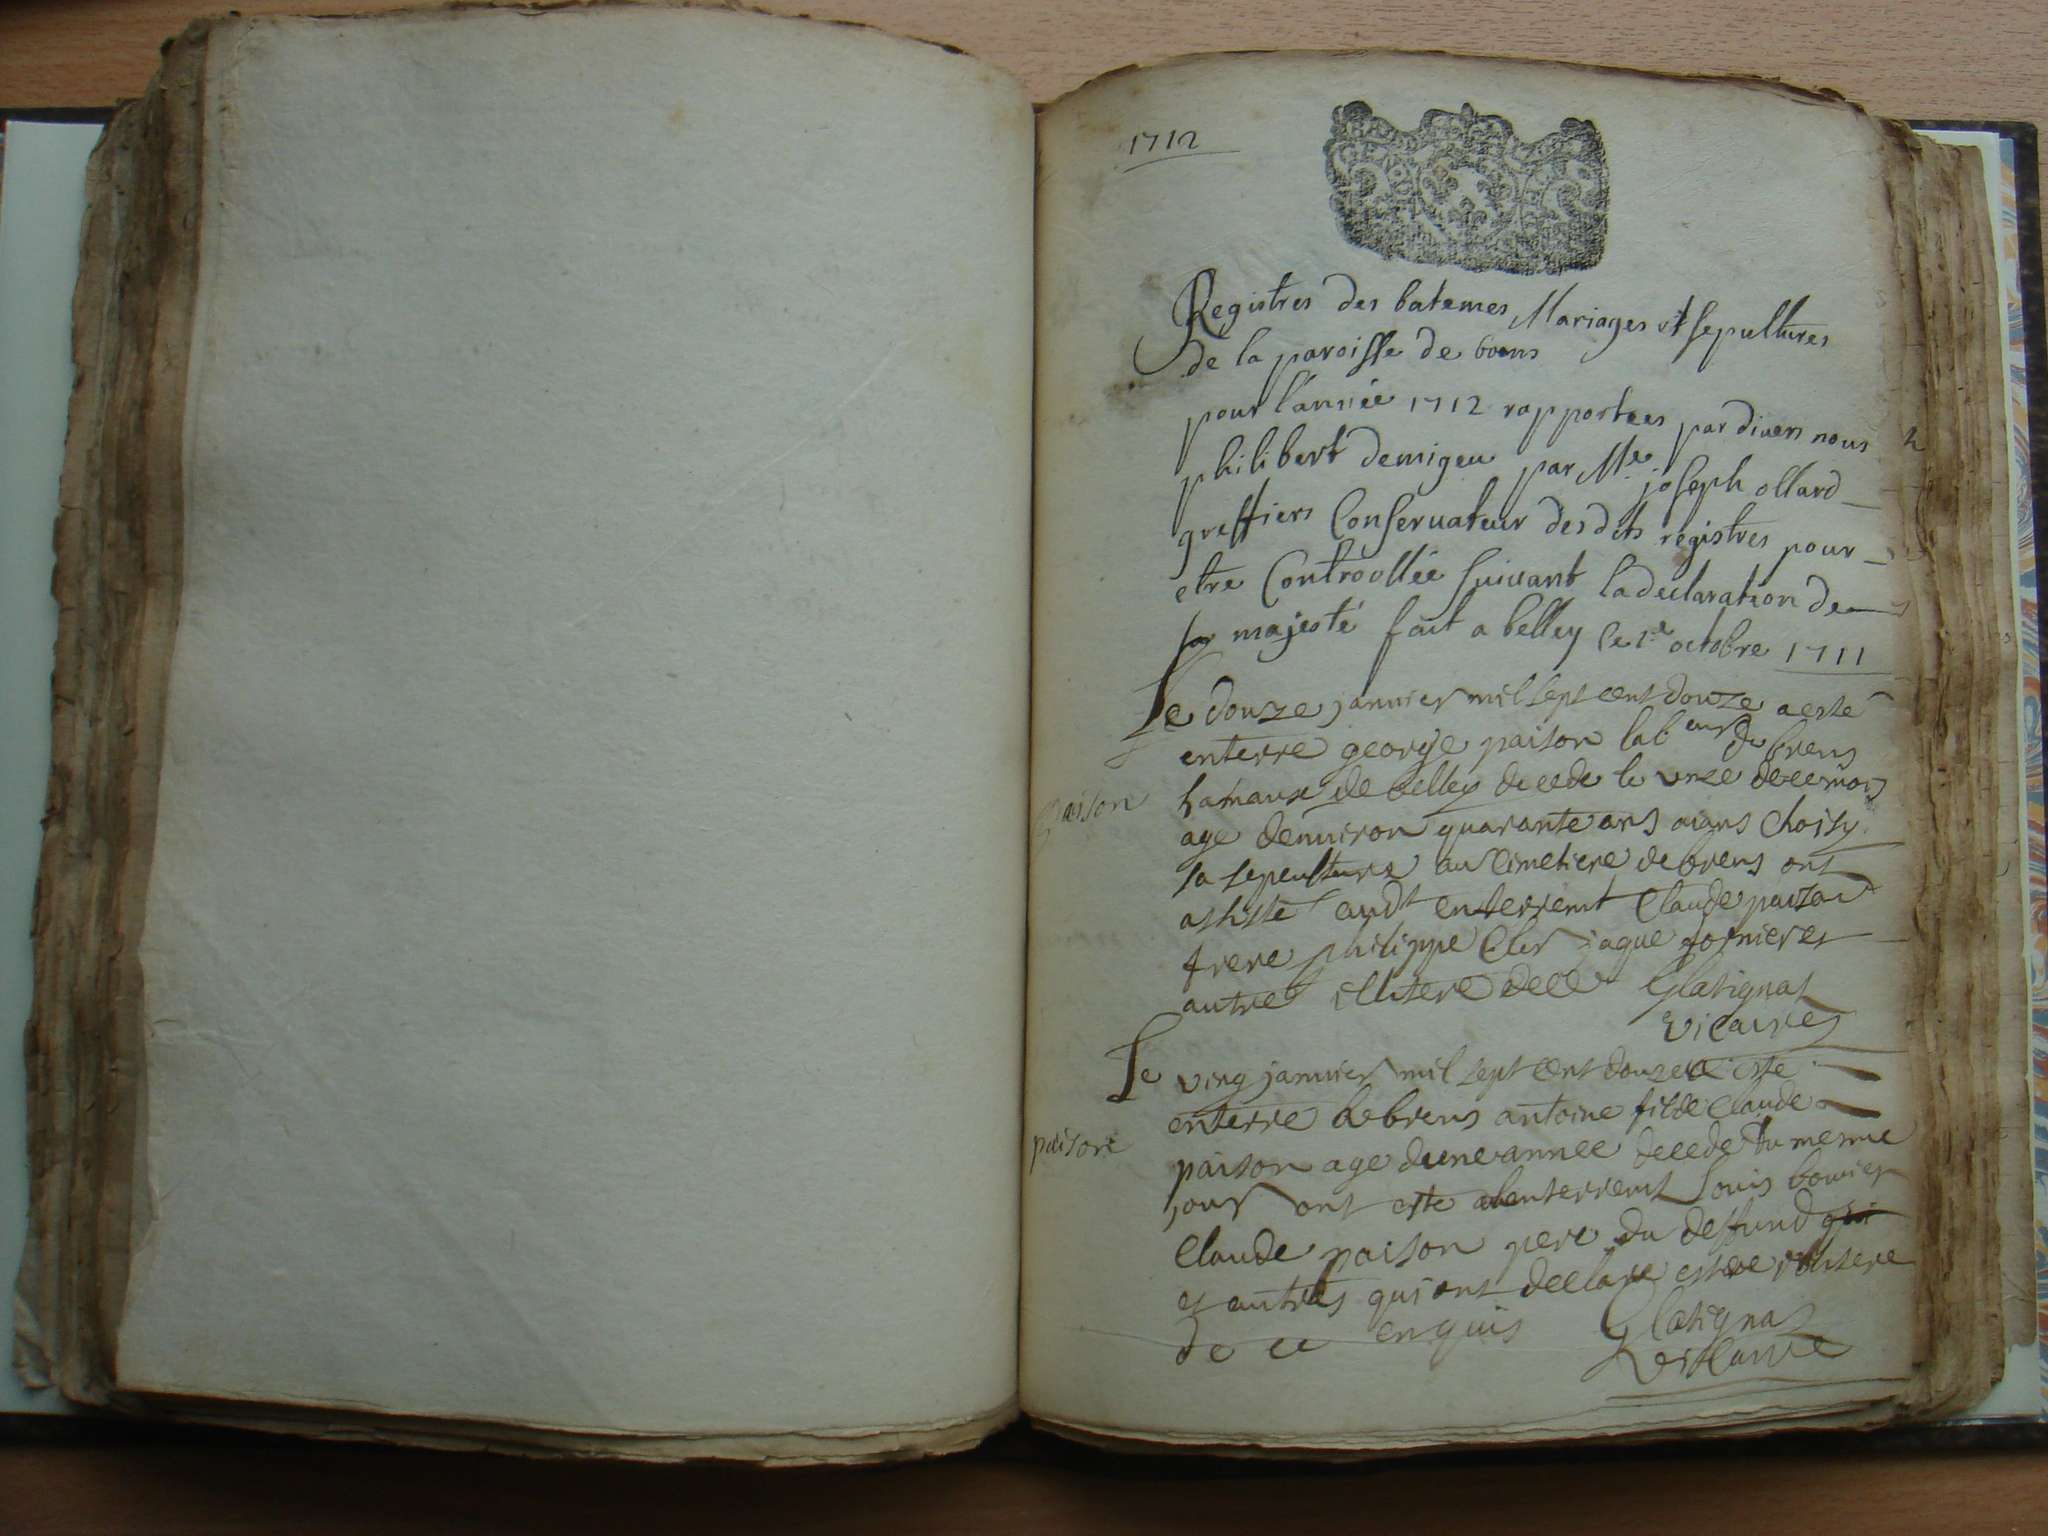 1712
Registres des batemes Mariages et sepultures
de la paroisse de
pour l'année 1712 rapportees par divers nous
philibert demigeu par Me joseph ollard
greffiers Conservateur desdits registres pour
etre Controollée suivant la declaration de
sa majesté fait a belley le 1e octobre 1711
Le douze janvier mil sept cent douze a esté
enterre george paison labeur de brens
hamaux de belley decede le unze de ce mois
paison
age denviron quarante ans aians choisy
sa sepulture au cimetiere de brens ont
assisté audt enterremt Claude paison
frere philippe jaque fornier et
autre illitere de ce Glatignat
vicaire
Le ving janvier mil sept cent douze a este
enterre a brens antoine fil de Claude
paison
paison age dune annee decede du mesme
jour ont este a lenterremt Louis bouvier
Claude paison pere du deffund
et autres qui ont declare estre illitere
de ce enquis Glatignat
vicaire